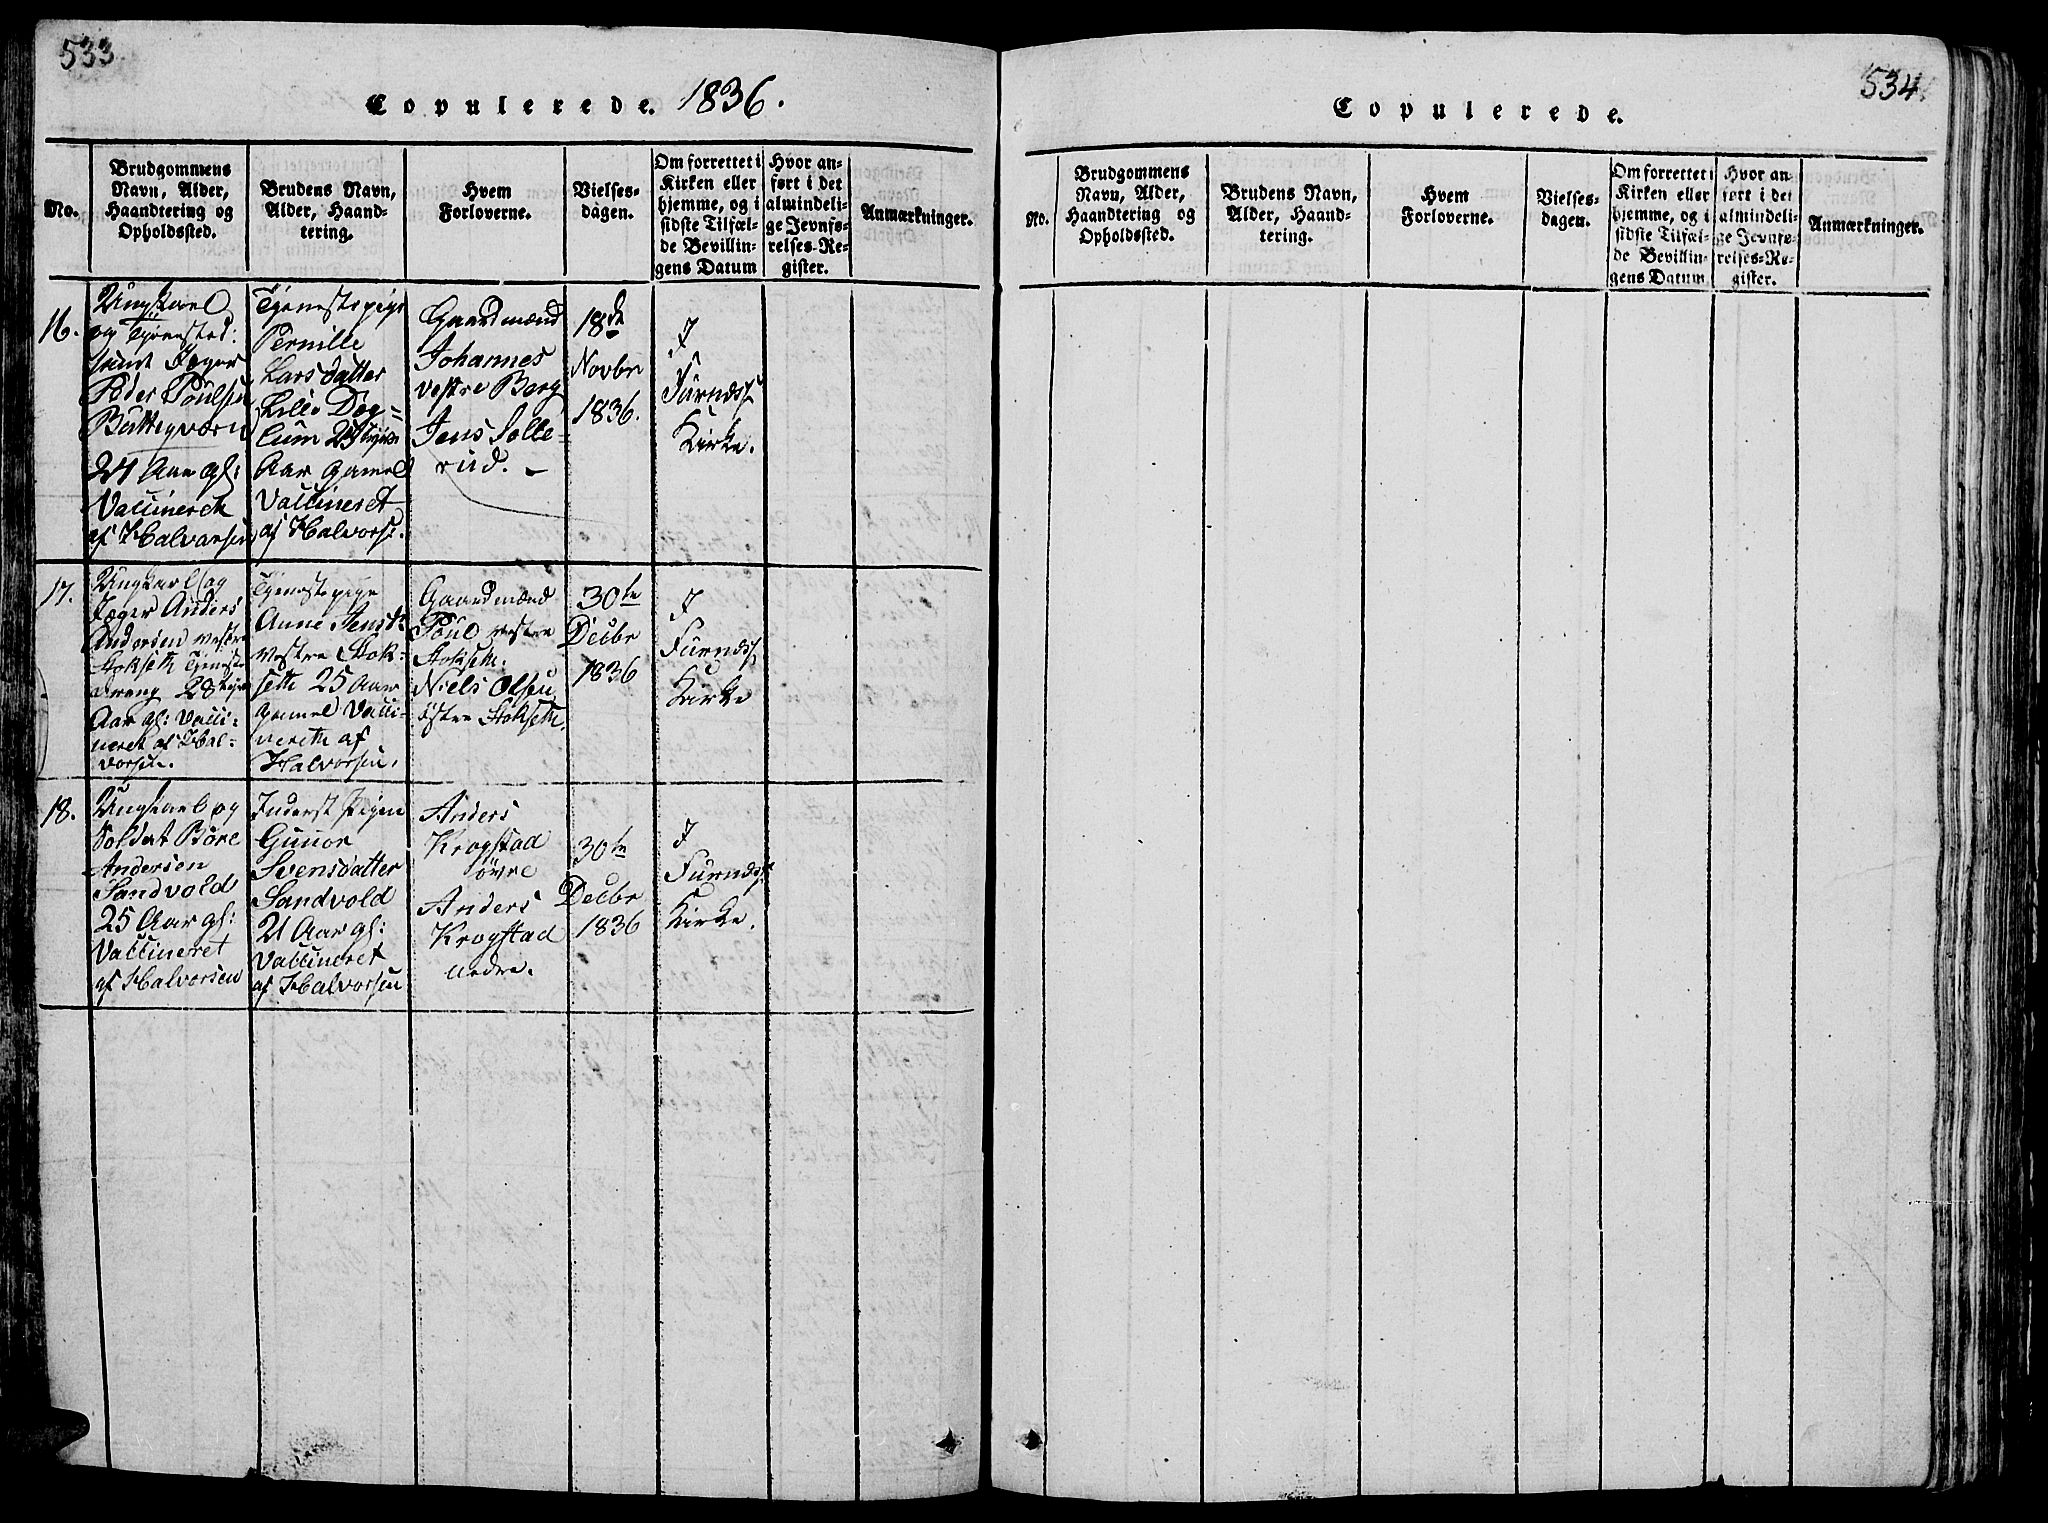 533.
Copulerede. 1836.
No.
Brudgommens
Navn, Alder,
Haandtering og
Opholdssted.
Brudens Navn,
Alder, Haand-
tering.
Hvem
Forloverne.
Vielses-
dagen.
Om forrettet i
Kirken eller
hjemme, og i
sidste Tilfæl-
de Bevillin-
gens Datum
Hvor an-
ført i det
almindeli-
ge Jevnfø-
relses-Re-
gister.
Anmærkninger.
16.
Ungkarl
og
Jæger
Peder Poulsen
24 Aar gl:
Vaccineret
af Halvorsen
Tjenestepige
Pernille
Larsdatter
Lille Dæg=
lum
Aar gamel
Vaccineret
af Halvors:
Gaardmænd
Johannes
vestre Berg
Jens Solle=
rud.
18de
Novbr
1836.
I
Furnæss
Kirke.
17.
Ungkarl og
Jæger Anders
Andersen vestre
Stokseth Tjeneste
dreng 28
Aar gl: Vacci=
neret af Hal=
vorsen.
Tjenestepige
Anne Jensd:
vestre Stok=
seth 25 Aar
gamel Vacci=
nereth af
Halvorsen.
Gaardmænd
Poul vestre
Stokseth.
Niels Olsen
østre Stokseth.
30te
Decbr
1836
I
Furnæss
Kirke
18.
Ungkarl og
Soldat Børe
Andersen
Sandvold
25 Aar gl:
Vaccineret
af Halvorsen
Inderst Pigen
Gunor
Svensdatter
Sandvold
21 Aar gl:
Vaccineret
af Halvorsen
Anders
Krogstad
øvre
Anders
Krogstad
nedre.
30te
Decbr
1836
I
Furnæss
Kirke.
534.
Copulerede.
No.
Brudgommens
Navn, Alder,
Haandtering og
Opholdssted.
Brudens Navn,
Alder, Haand-
tering.
Hvem
Forloverne.
Vielses-
dagen.
Om forrettet i
Kirken eller
hjemme, og i
sidste Tilfæl-
de Bevillin-
gens Datum
Hvor an-
ført i det
almindeli-
ge Jevnfø-
relses-Re-
gister.
Anmærkninger.